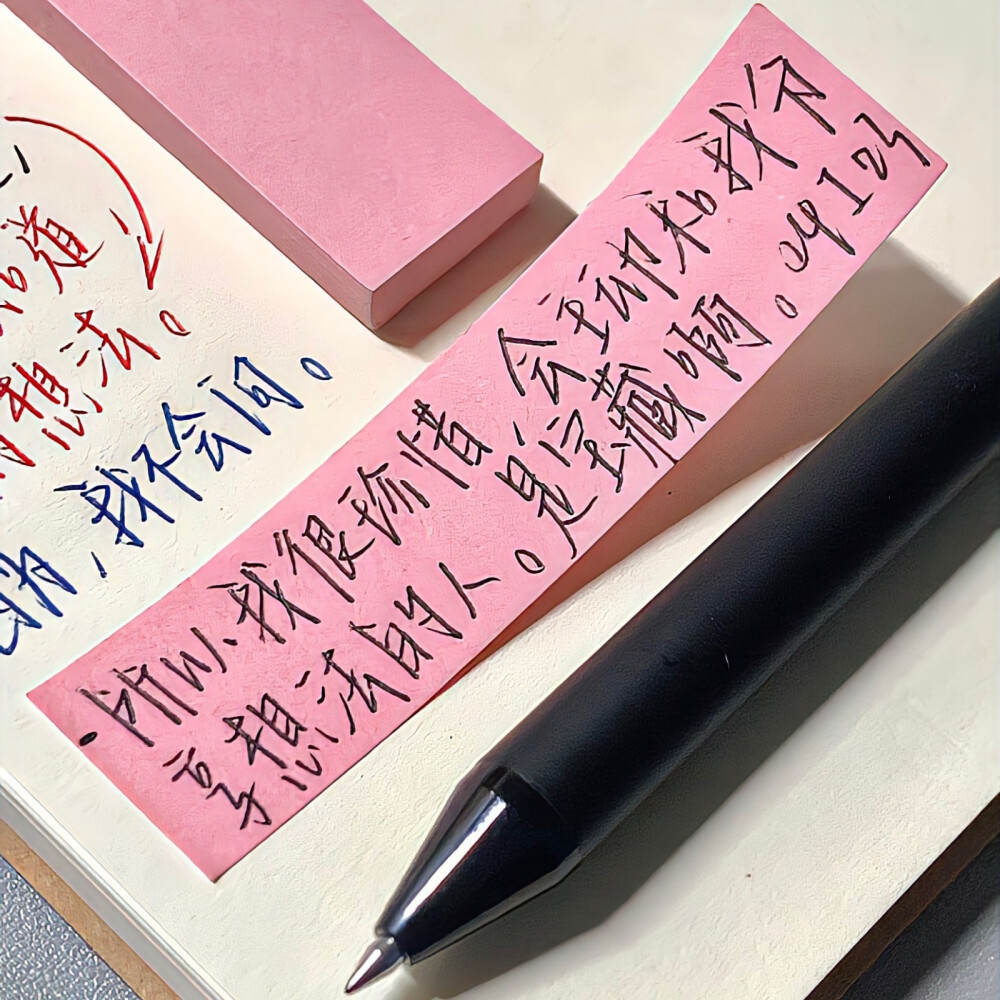 道
想法。
，我不会问。
·所以我很珍惜 会主动和我分
享想法的人。是宝藏啊。04123